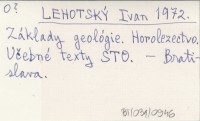 O?
LEHOTSKÝ Ivan 1972.
Základy geológie. Horolezectvo.
Učebné texty STO. – Brati-
slava.
BI/031/0946